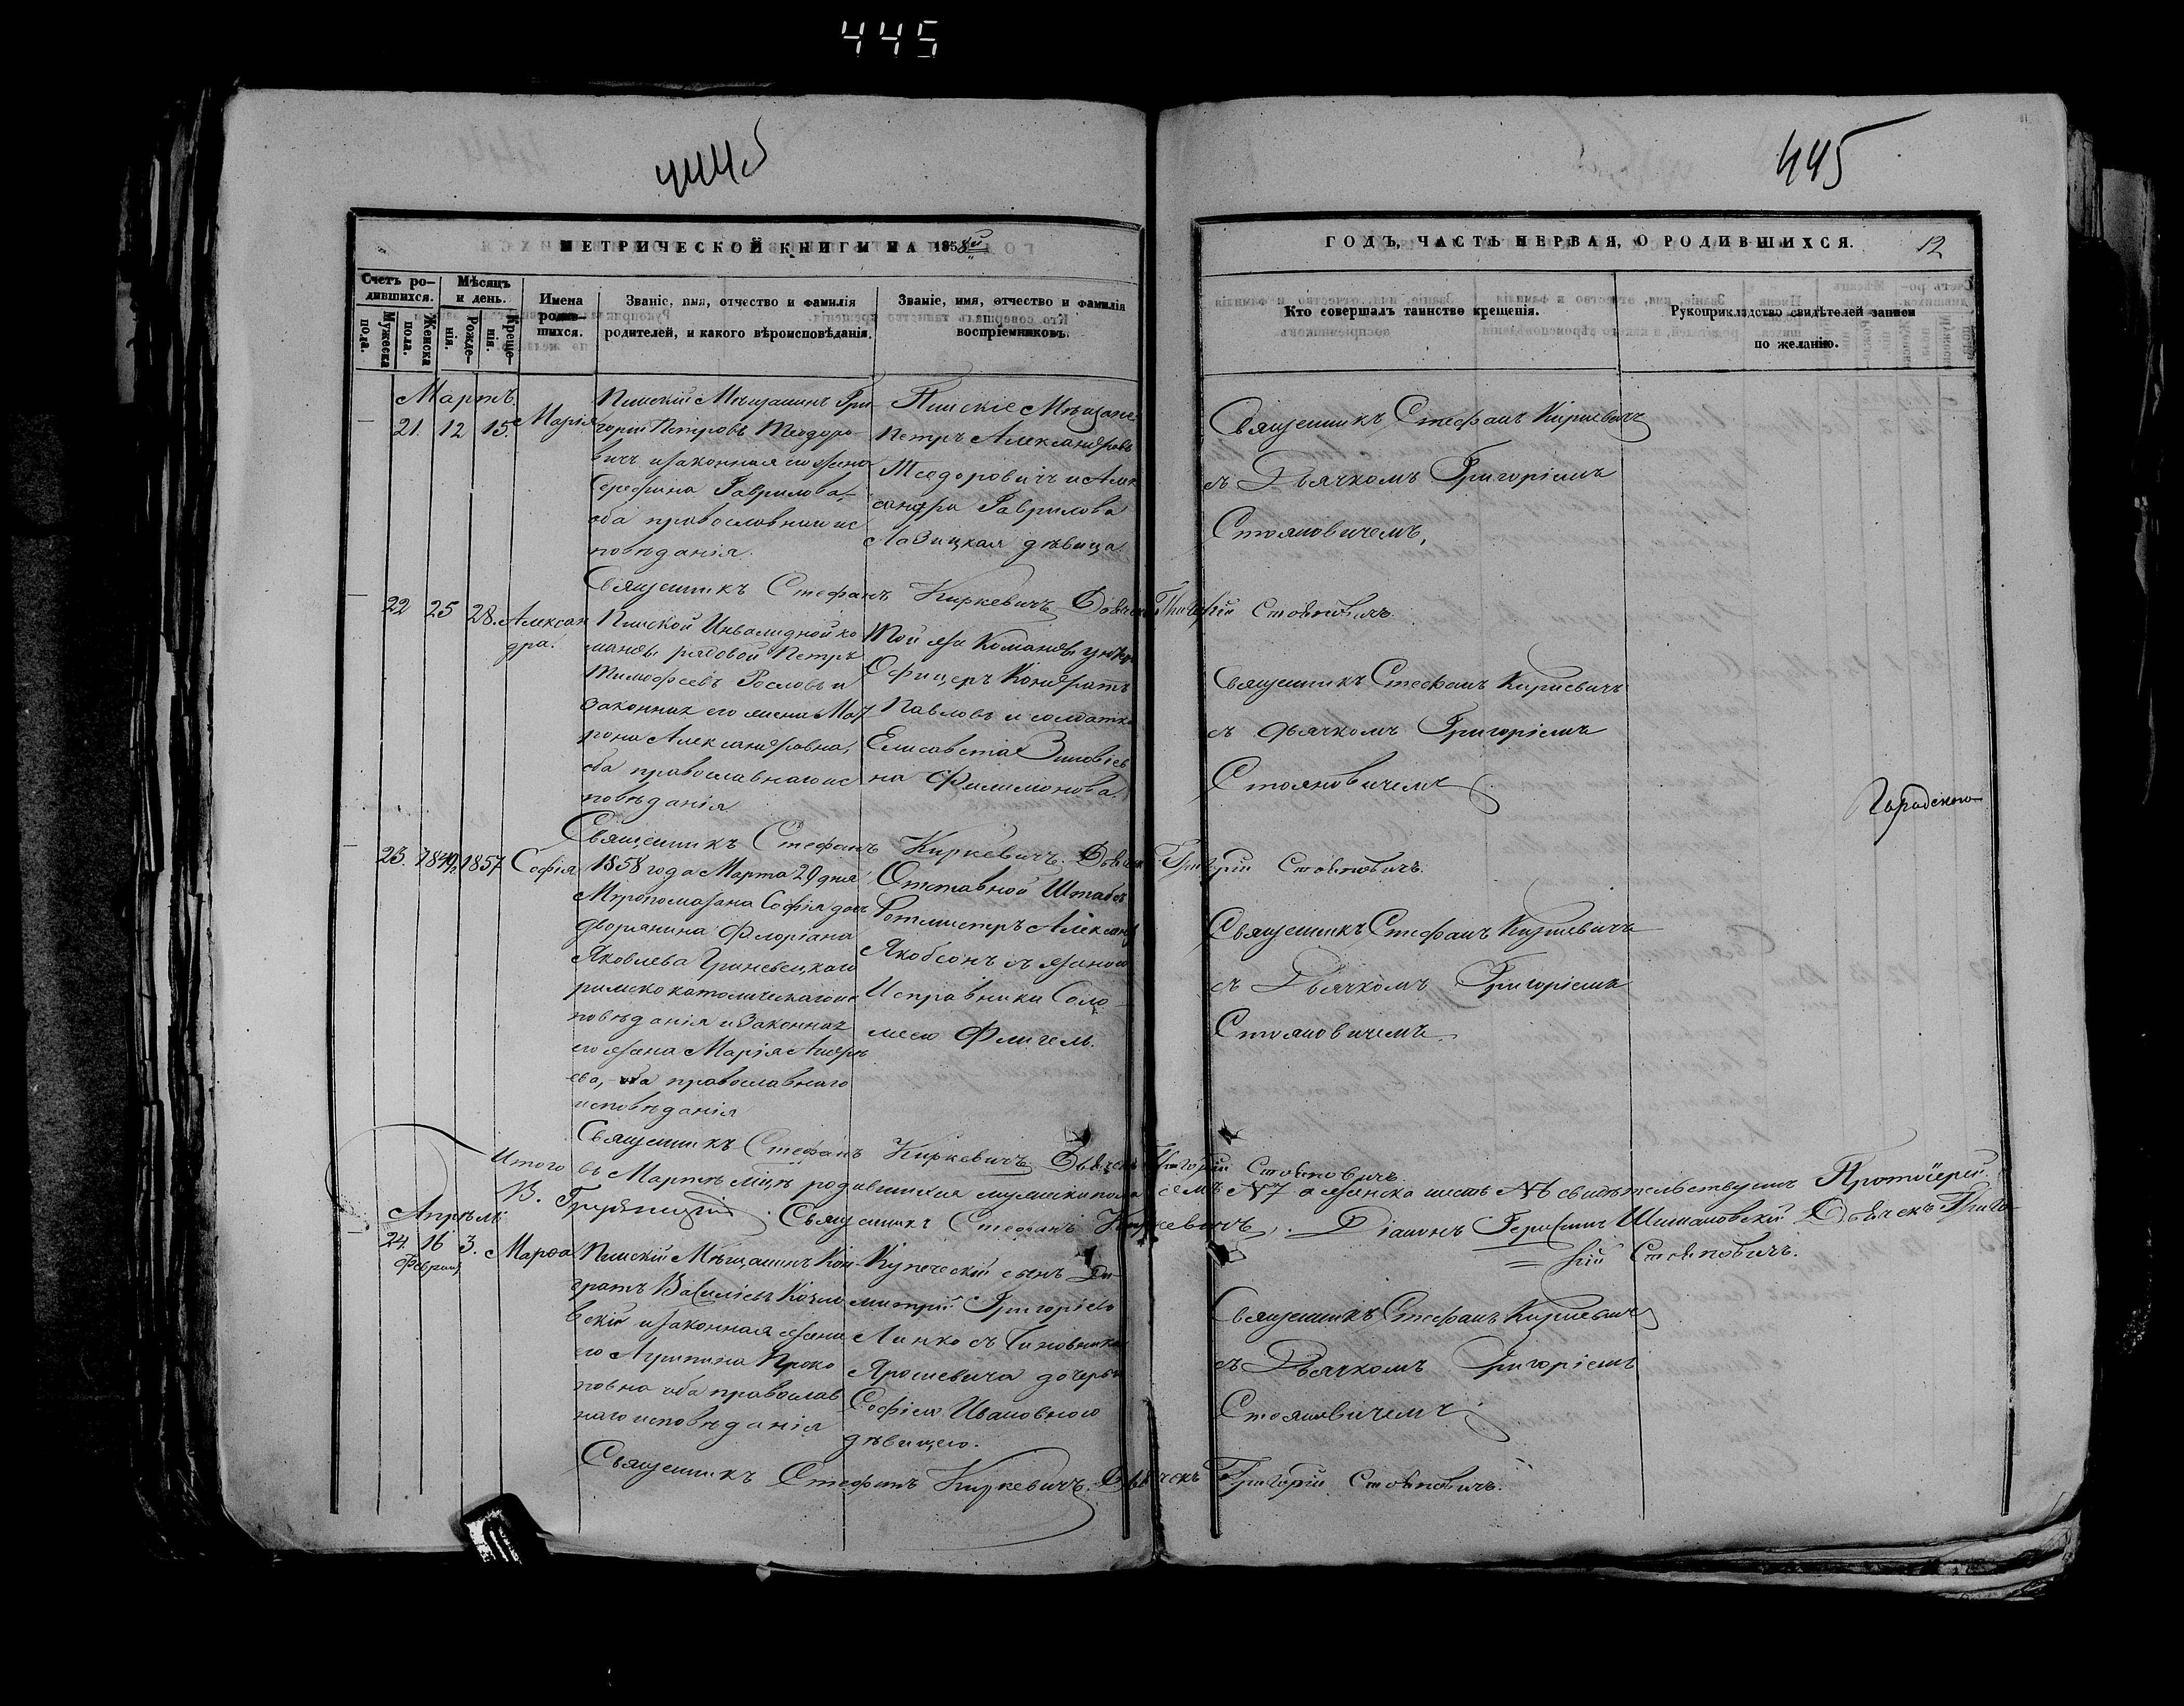 445
445
445
МЕТРИЧЕСКОЙ КНИГИ НА 1858й
ГОДЪ, ЧАСТЬ ПЕРВАЯ, О РОДИВШИХСЯ.
12
Счетъ родившихся.
Мужеска пола.
Женска пола.
Мѣсяцъ и день.
Рожденія.
Крещенія.
Имена родившихся.
Званіе, имя, отчество и фамилія
родителей, и какого вѣроисповѣданія.
Званіе, имя, отчество и фамилія
воспріемниковъ.
Кто совершалъ таинство крещенія.
Рукоприкладство свидѣтелей записи
по желанію.
Мартъ
21. 12 15. Марія
Пинскій Мѣщанинъ Гри
горій Петровъ Теодоро
вичъ и законная его жена
Гаврилова,
оба православнаго ис
повѣданія.
Пинскіе Мѣщане
Петръ Александровъ
Теодоровичъ и Алек
сандра Гаврилова
дѣвица
Священникъ Стефанъ Киркевичъ
съ Дьячкомъ Григоріемъ
Стояновичемъ,
Священникъ Стефанъ Киркевичъ Дьячекъ Григорій Стояновичъ.
22 25 28. Алексан
дра.
Пинской Инвалидной ко
манды рядовой Петръ
Тимофеевъ Рословъ и
законная его жена Мат
рона Александровна,
оба православнаго ис
повѣданія
Той же Команды унтеръ
Офицеръ Кондратъ
Павловъ и солдатка
Елисавета Зиновіев
на Филимонова.
Священникъ Стефанъ Киркевичъ
съ дьячкомъ Григоріемъ
Стояновичемъ
Городскаго
Священникъ Стефанъ Киркевичъ. Дьячекъ Григорій Стояновичъ.
23. 1857 Софія
1858 года Марта 29 дня
Мѵропомазана Софія дочь
дворянина Флоріана
Яковлева Гриневецкаго
римско католическаго ис
повѣданія и законная
его жена Марія Андре
ева, оба православнаго
исповѣданія
Отставной Штабсъ
Ротмистръ Александръ
Якобсонъ съ женою
Исправника Соло
меею Флигель.
Священникъ Стефанъ Киркевичъ
съ Дьячкомъ Григоріемъ
Стояновичемъ.
Священникъ Стефанъ Киркевичъ Дьячекъ Григорій Стояновичъ.
Итого въ Мартѣ мцѣ родившихся мужеска пола семь №7 а женска шесть №6 свидѣтельствуемъ Протоіерей
В. Грудницкій. Священникъ Стефанъ Киркевичъ. Діаконъ Герасимъ Шимановскій Дьячекъ Григо-
рій Стояновичъ.
Апрѣль
24. 16 3. Марѳа
Февраля
Пинскій Мѣщанинъ Кон
дратъ Василіевъ Козло
вскій и законная жена
его Агрипина Проко
повна оба православ
наго исповѣданія
Купеческій сынъ Ди
митрій Григоріевъ
Линко съ Чиновника
Ярошевича дочерью
Софіею Ивановною
дѣвицею.
Священникъ Стефанъ Киркевичъ
съ Дьячкомъ Григоріемъ
Стояновичемъ
Священникъ Стефанъ Киркевичъ. Дьячекъ Григорій Стояновичъ.